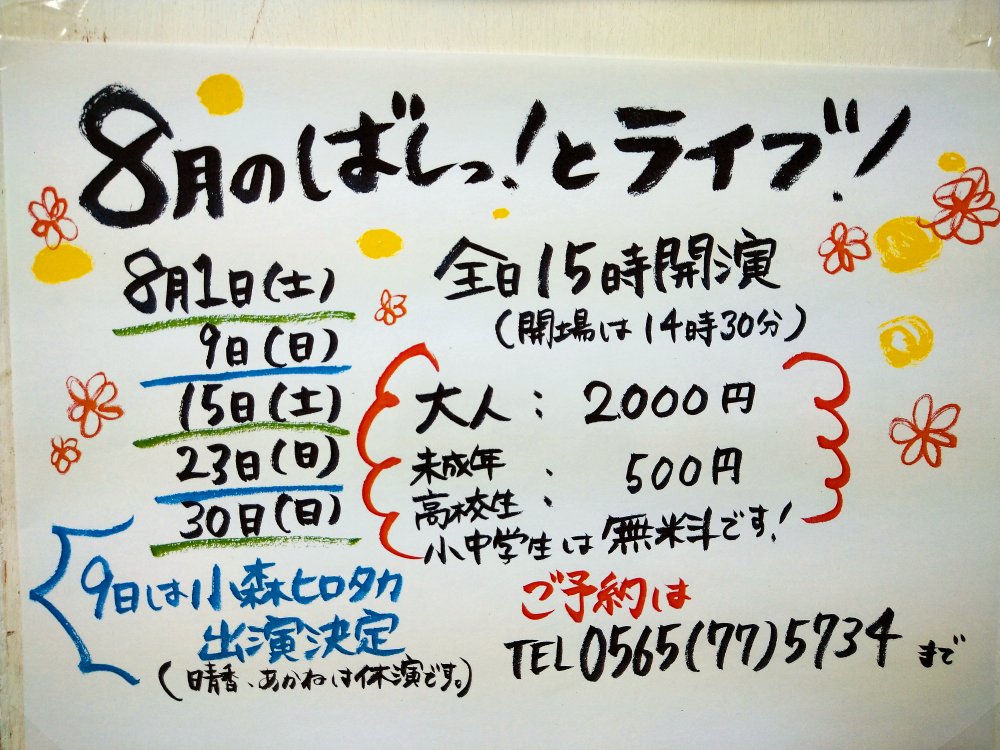 8月のばしっ!とライブ!
8月1日(土)
9日(日)
15日(土)
23日(日)
30日(日)
全日15時開演
(開場は14時30分)
大人: 2000円
未成年
高校生: 500円
小中学生は無料です!
9日は小森ヒロタカ
出演決定
(晴香、あかねは休演です。)
ご予約は
TEL0565(77)5734まで